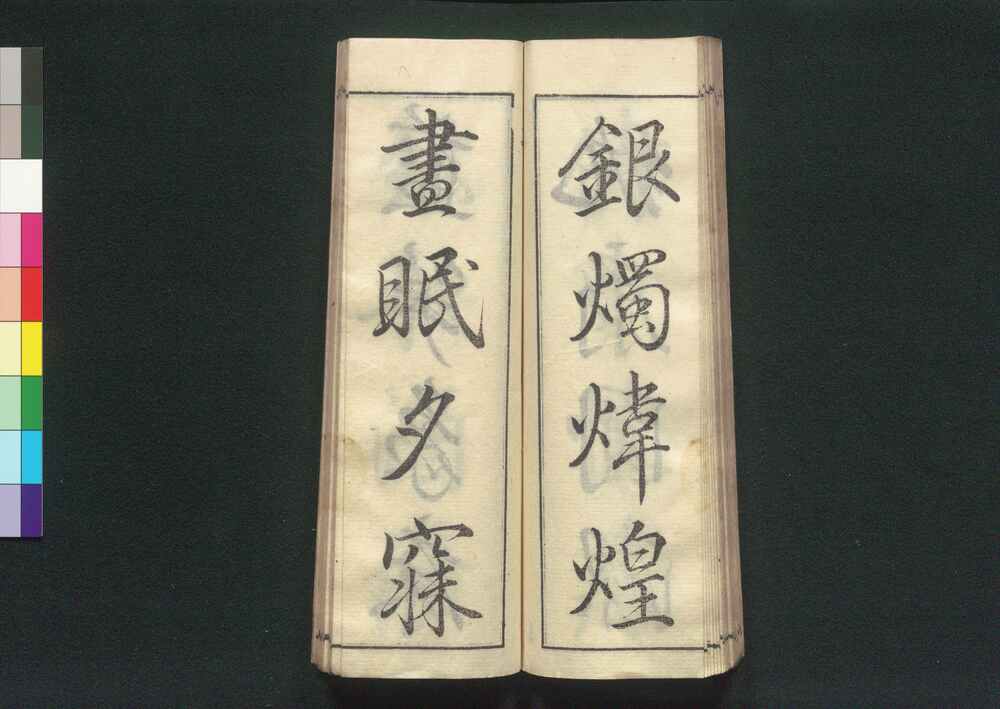 銀燭煒煌
晝眠夕寐